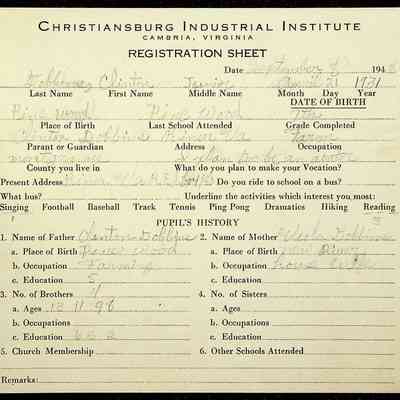 CHRISTIANSBURG INDUSTRIAL INSTITUTE
CAMBRIA, VIRGINIA
REGISTRATION SHEET
Date September 194
Clinton Junior April 21 1931
Last Name First Name Middle Name Month Day Year
DATE OF BIRTH
Piney Wood Piney Wood 7th
Place of Birth Last School Attended Grade Completed
Clinton Dobbins Va Farm
Parent or Guardian Address Occupation
I plan to be an
County you live in What do you plan to make your Vocation?
Present Address Do you ride to school on a bus?
What bus? Underline the activities which interest you most:
Singing Football Baseball Track Tennis Ping Pong Dramatics Hiking Reading
PUPIL'S HISTORY
1. Name of Father Clinton Dobbins 2. Name of Mother
a. Place of Birth Piney Wood a. Place of Birth New River
b. Occupation Farming b. Occupation house
c. Education 5 c. Education
3. No. of Brothers 4 4. No. of Sisters
a. Ages 13 11 9 6 a. Ages
b. Occupations b. Occupations
c. Education 6 5 2 c. Education
5. Church Membership 6. Other Schools Attended
Remarks: